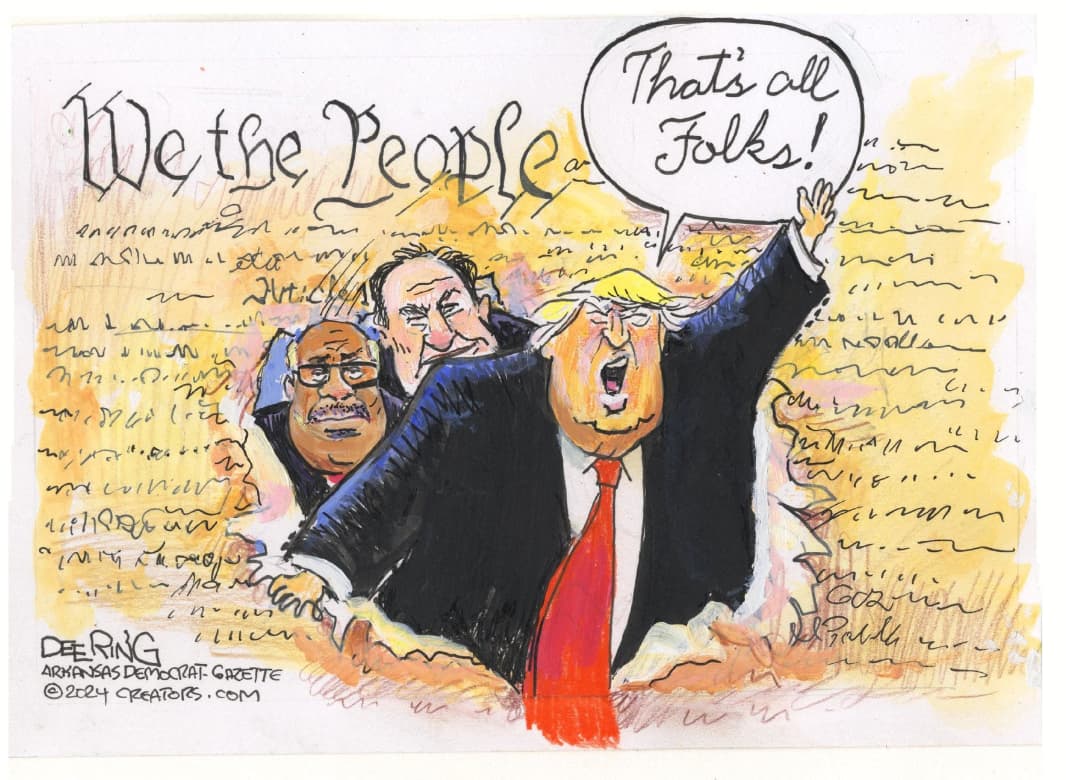 We the People
That's all
Folks!
Article
DEERING
ARKANSAS DEMOCRAT-GAZETTE
©2024 CREATORS.COM